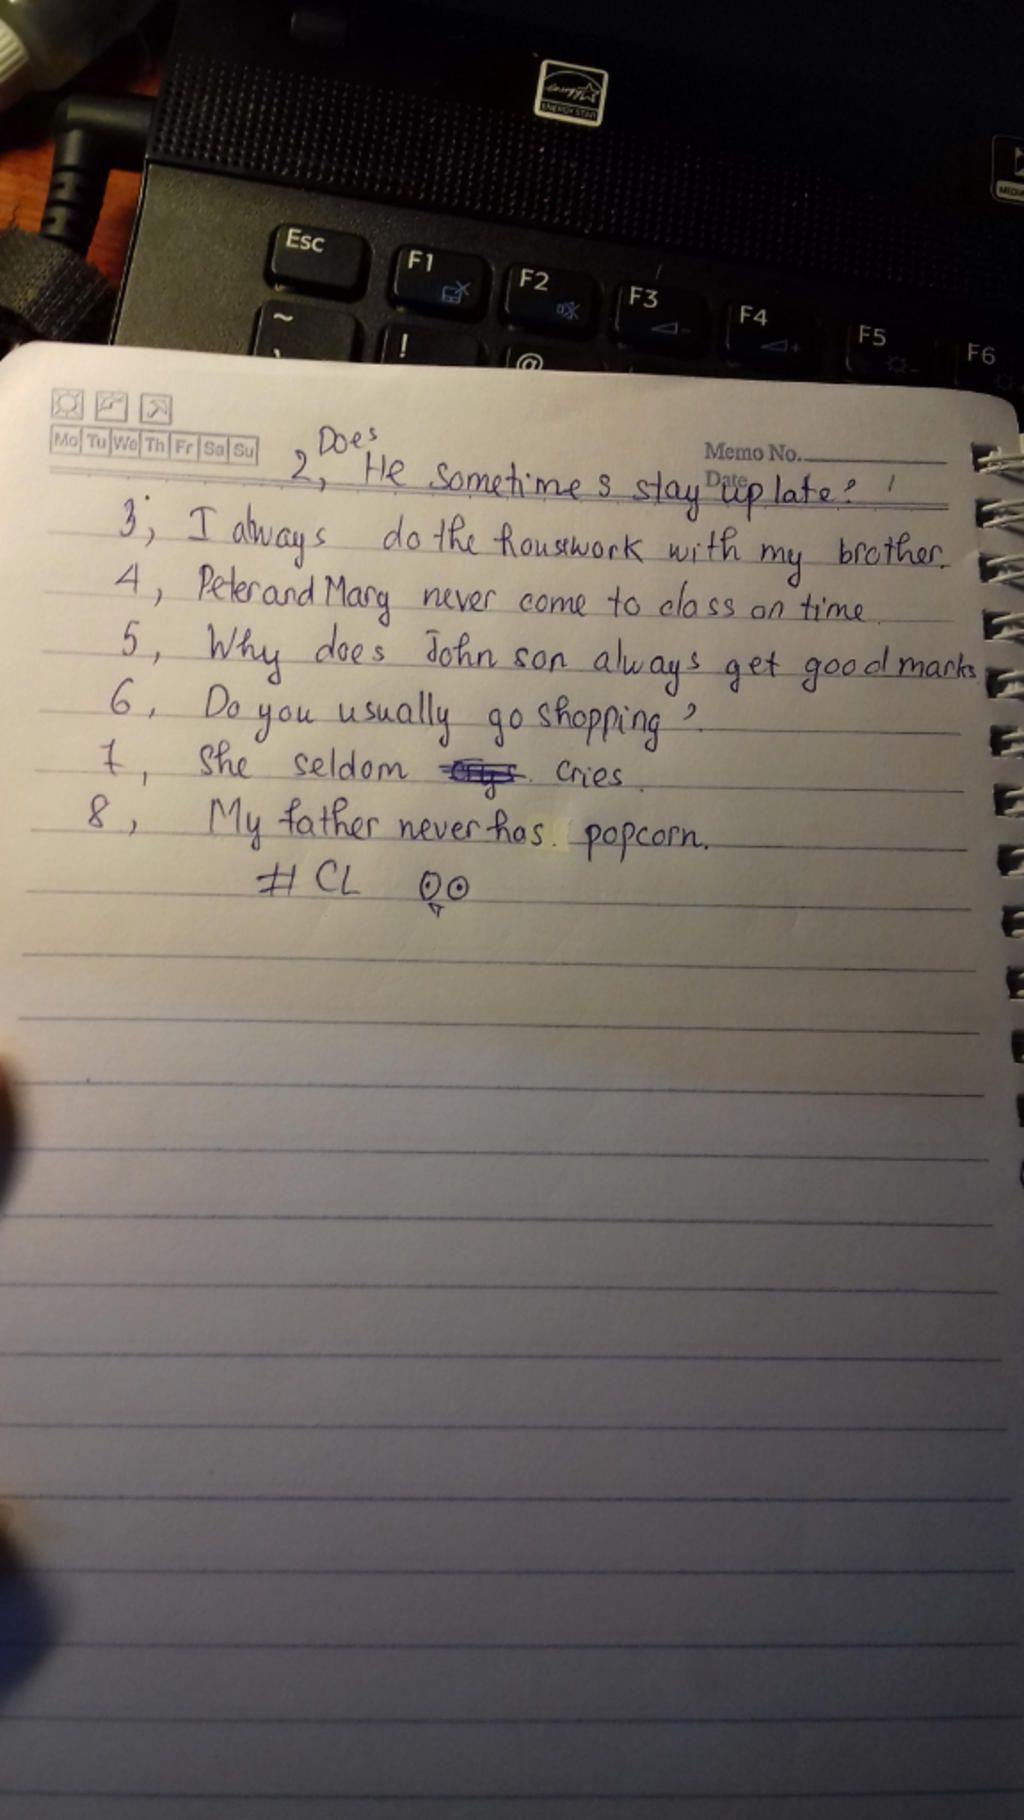 ENERGY STAR
Esc
F1
F2
F3
F4
F5
F6
~
!
@
Mo Tu We Th Fr Sa Su
Memo No.
Date
Does
2, He sometimes stay up late?
3, I always do the housework with my brother.
4, Peter and Mary never come to class on time.
5, Why does Johnson always get good marks
6, Do you usually go shopping?
7, She seldom cries.
8, My father never has popcorn.
# CL